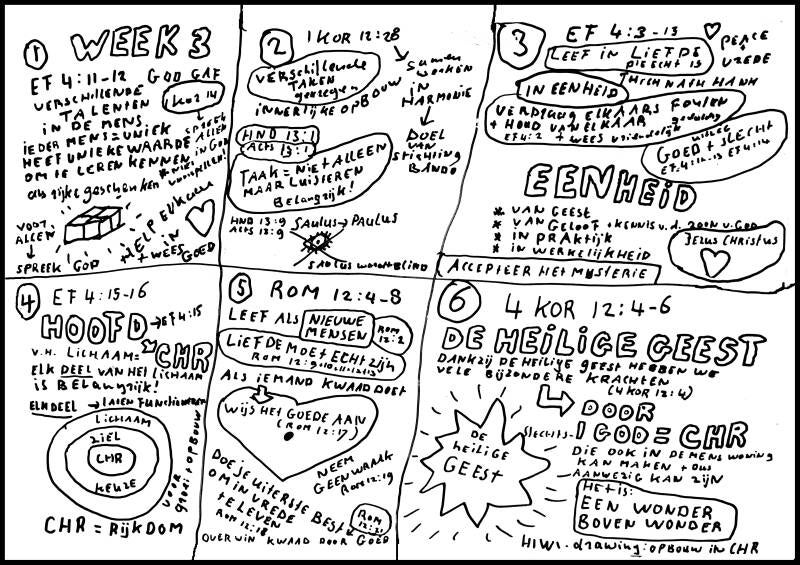 1 WEEK 3
EF 4:11-12 GOD GAF
VERSCHILLENDE
TALENTEN
IN DE MENS.
1 KOR 14
IEDER MENS = UNIEK
HEEFT UNIEKE WAARDE
OM TE LEREN KENNEN
als rijke geschenken
SPREEK
ALLEN
IN GOD
VOOR
ALLEN
SPREEK GOD
+ HELP ELKAAR
IN
+ WEES GOED
2 1 KOR 12:28
VERSCHILLENDE
TAKEN
gekregen
INNERLIJKE OPBOUW
Samen
werken
IN
HARMONIE
DOEL
VAN
STICHTING
BANDO
HND 13:1
ACTS 13:1
TAAK = NIET ALLEEN
MAAR LUISTEREN
BELANGRIJK!
HND 13:9
ACTS 13:9
SAULUS → PAULUS
SAULUS WORDT BLIND
3 EF 4:3-13
LEEF IN LIEFDE
DIE ECHT IS
PEACE
+
VREDE
IN EENHEID
VERDRAAG ELKAARS FOUTEN
+ HOUD VAN ELKAAR
EF 4:2 + WEES vriendelijk
geduldig
GOED + SLECHT
EF 4:12-13 EF 4:14
EENHEID
* VAN GEEST
* VAN GELOOF + KENNIS V.D. ZOON V. GOD
* IN PRAKTIJK
* IN WERKELIJKHEID
JEZUS CHRISTUS
ACCEPTEER HET MYSTERIE
4 EF 4:15-16
HOOFD → EF 4:15
V.H. LICHAAM = CHR
ELK DEEL VAN HET LICHAAM
IS BELANGRIJK!
ELK DEEL → LATEN FUNCTIONEREN
LICHAAM
ZIEL
CHR
KEUZE
VOOR
groei + OPBOUW
CHR = RIJKDOM
5 ROM 12:4-8
LEEF ALS NIEUWE
MENSEN
ROM
12:2
LIEFDE MOET ECHT ZIJN
ROM 12:9+10+11+12+13
ALS IEMAND KWAAD DOET
WIJS HET GOEDE AAN
(ROM 12:17)
NEEM
GEEN WRAAK
ROM 12:19
DOE JE UITERSTE BEST
OM IN VREDE
TE LEVEN
ROM 12:18
ROM
12:21
OVERWIN KWAAD DOOR GOED
6 4 KOR 12:4-6
DE HEILIGE GEEST
DANKZIJ DE HEILIGE GEEST HEBBEN WE
VELE BIJZONDERE KRACHTEN
(4 KOR 12:4)
DOOR
SLECHTS 1 GOD = CHR
DIE OOK IN DE MENS WONING
KAN MAKEN + DUS
AANWEZIG KAN ZIJN
DE
heilige
GEEST
HET IS:
EEN WONDER
BOVEN WONDER
HIWI-drawing: OPBOUW IN CHR